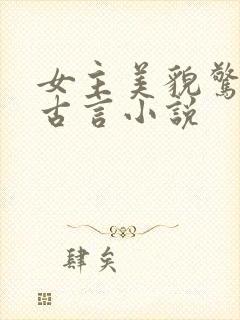 女主美貌驚
古言小說
肆矣